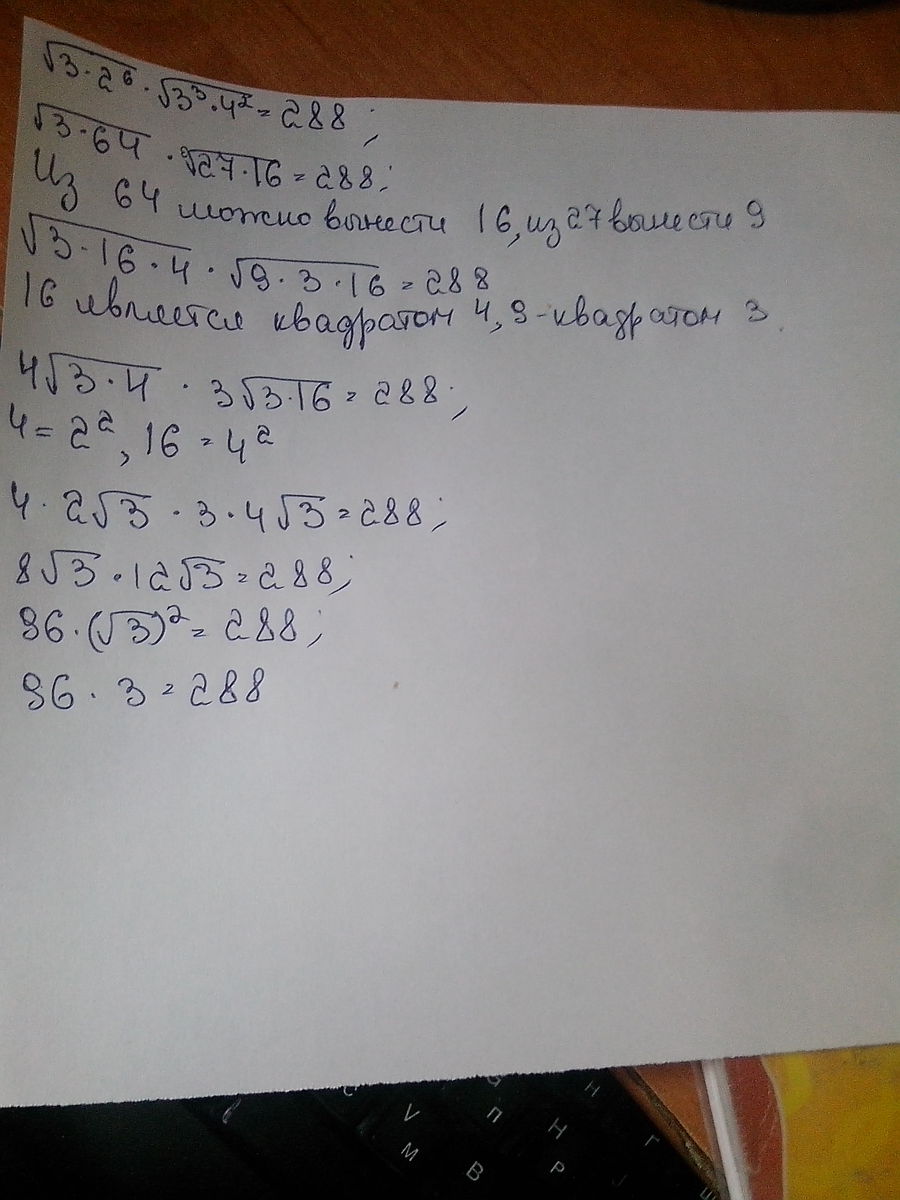 √3·2⁶ · √3³·4² = 288;
√3·64 · √27·16 = 288;
Из 64 можно вынести 16, из 27 вынести 9
√3·16·4 · √9·3·16 = 288
16 является квадратом 4, 9-квадратом 3.
4√3·4 · 3√3·16 = 288;
4 = 2², 16 = 4²
4·2√3 · 3·4√3 = 288;
8√3 · 12√3 = 288;
96·(√3)² = 288;
96 · 3 = 288
V П Н
М В Н Р Г